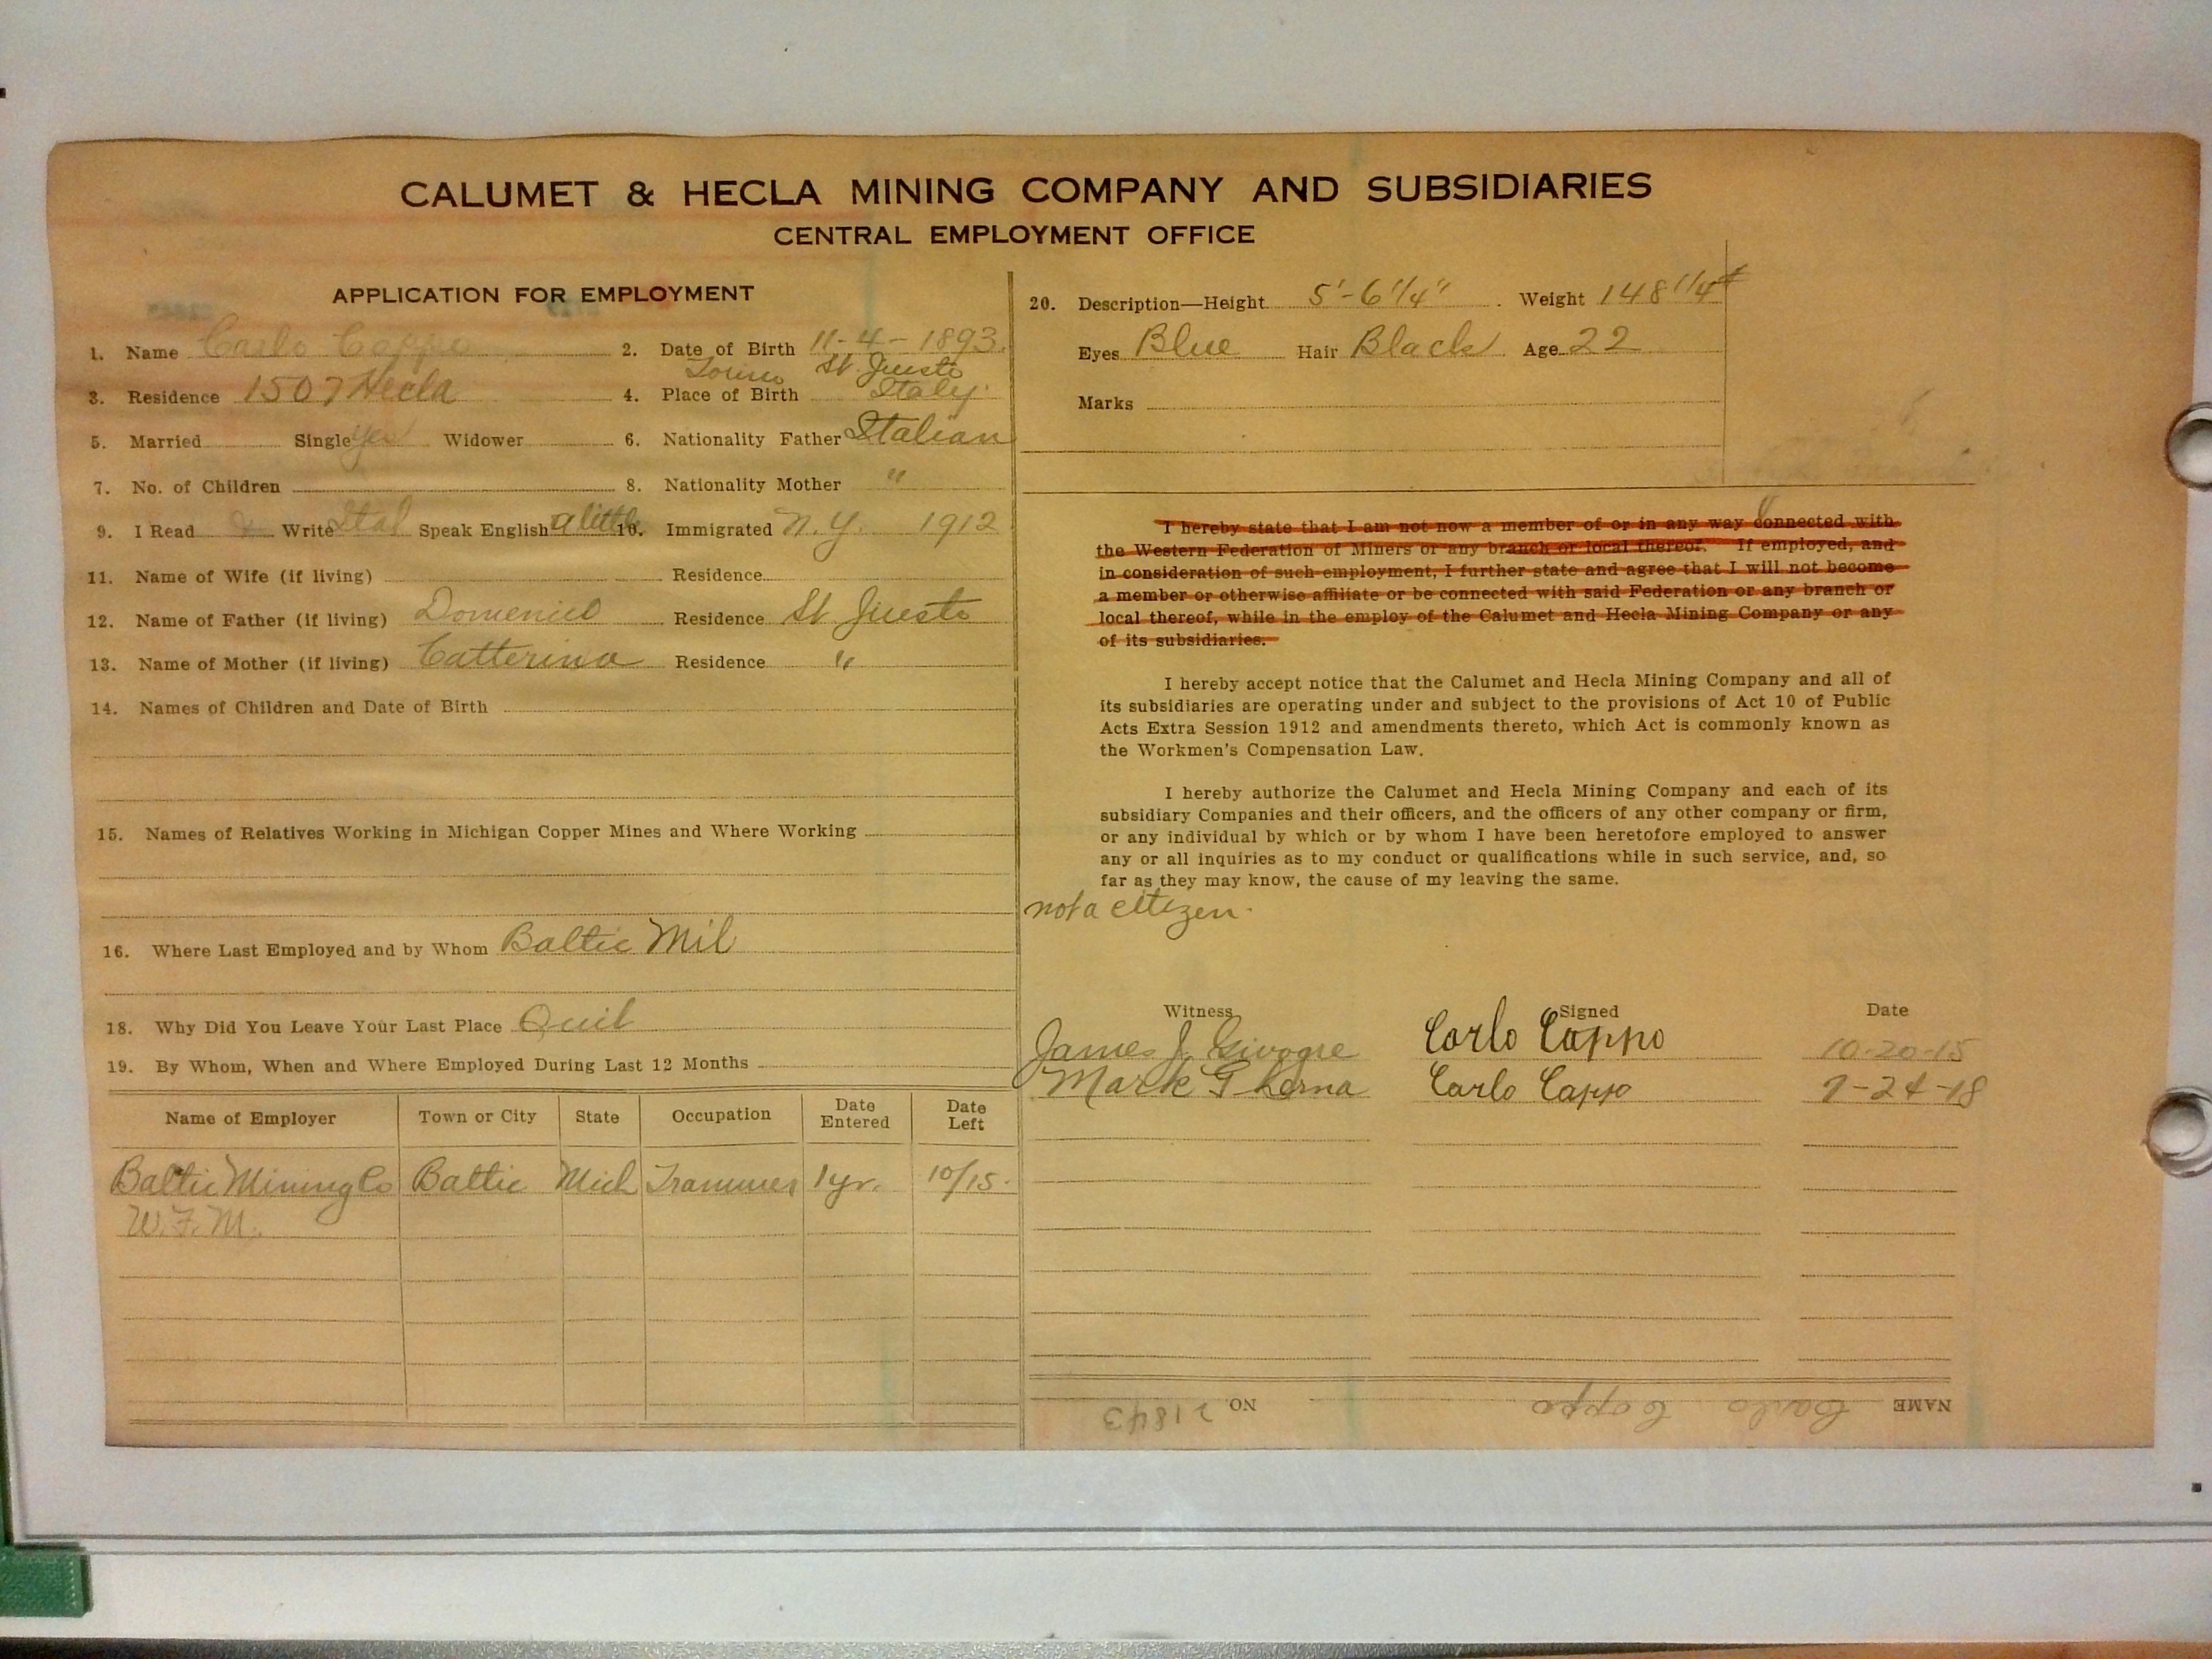 CALUMET & HECLA MINING COMPANY AND SUBSIDIARIES
CENTRAL EMPLOYMENT OFFICE
APPLICATION FOR EMPLOYMENT
1. Name Carlo Coppo 2. Date of Birth 11-4-1893.
Torino St. Giusto
3. Residence 1507 Hecla 4. Place of Birth Italy.
5. Married Single yes Widower 6. Nationality Father Italian
7. No. of Children 8. Nationality Mother "
9. I Read & Write Ital Speak English a little 10. Immigrated N.Y. 1912
11. Name of Wife (if living) Residence
12. Name of Father (if living) Domenico Residence St Giusto
13. Name of Mother (if living) Catterina Residence "
14. Names of Children and Date of Birth
15. Names of Relatives Working in Michigan Copper Mines and Where Working
16. Where Last Employed and by Whom Baltic Mil
18. Why Did You Leave Your Last Place Quit
19. By Whom, When and Where Employed During Last 12 Months
Name of Employer Town or City State Occupation Date Entered Date Left
Baltic Mining Co Baltic Mich Trammer 1 yr. 10/15.
W.F.M.
20. Description—Height 5'-6 1/4" . Weight 148 1/4#
Eyes Blue Hair Black Age 22
Marks
I hereby state that I am not now a member of or in any way connected with
the Western Federation of Miners or any branch or local thereof. If employed, and
in consideration of such employment, I further state and agree that I will not become
a member or otherwise affiliate or be connected with said Federation or any branch or
local thereof, while in the employ of the Calumet and Hecla Mining Company or any
of its subsidiaries.
I hereby accept notice that the Calumet and Hecla Mining Company and all of
its subsidiaries are operating under and subject to the provisions of Act 10 of Public
Acts Extra Session 1912 and amendments thereto, which Act is commonly known as
the Workmen's Compensation Law.
I hereby authorize the Calumet and Hecla Mining Company and each of its
subsidiary Companies and their officers, and the officers of any other company or firm,
or any individual by which or by whom I have been heretofore employed to answer
any or all inquiries as to my conduct or qualifications while in such service, and, so
far as they may know, the cause of my leaving the same.
not a citizen.
Witness Signed Date
James J. Carlo Coppo 10-20-15
Mark G Carlo Cappo 7-24-18
NAME Carlo Coppo NO. 21843